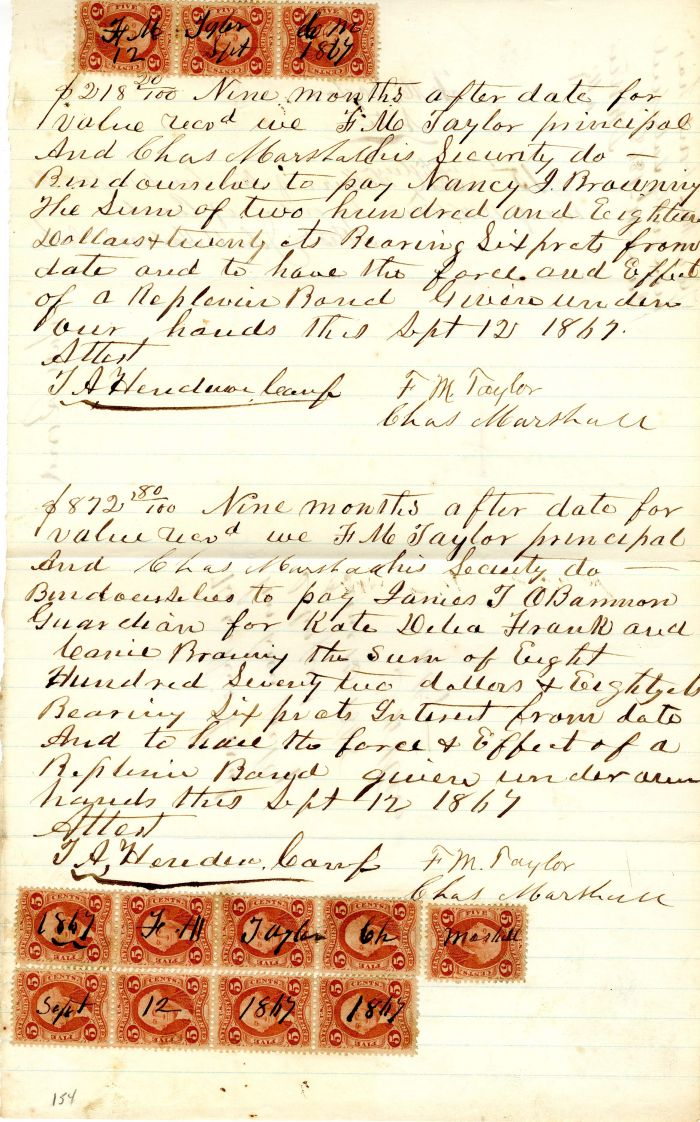 F. M. Tyler Ch M
12 Sept 1867
$218 20/100 Nine months after date for
value recvd we F M Taylor principal
And Chas Marshall his Security do —
Bind ourselves to pay Nancy J. Browning
The Sum of two hundred and Eighteen
Dollars & twenty cts Bearing Six prcts from
date and to have the force and Effect
of a Replevin Bond Given under
our hands this Sept 12 1867.
Attest
T A Herndon, Comr
F M Taylor
Chas Marshall
$872 80/100 Nine months after date for
value recvd we F M Taylor principal
And Chas Marshall his Security do —
Bind ourselves to pay James T OBannon
Guardian for Kate Delia Frank and
Browning the Sum of Eight
Hundred Seventy two dollars & Eighty cts
Bearing Six prcts Interest from date
And to have the force & Effect of a
Replevin Bond given under our
hands this Sept 12 1867
Attest
T A, Herndon, Comr
F. M. Taylor
Chas Marshall
1867 F. M Taylor Ch Marshall
Sept 12 1867 1867
154